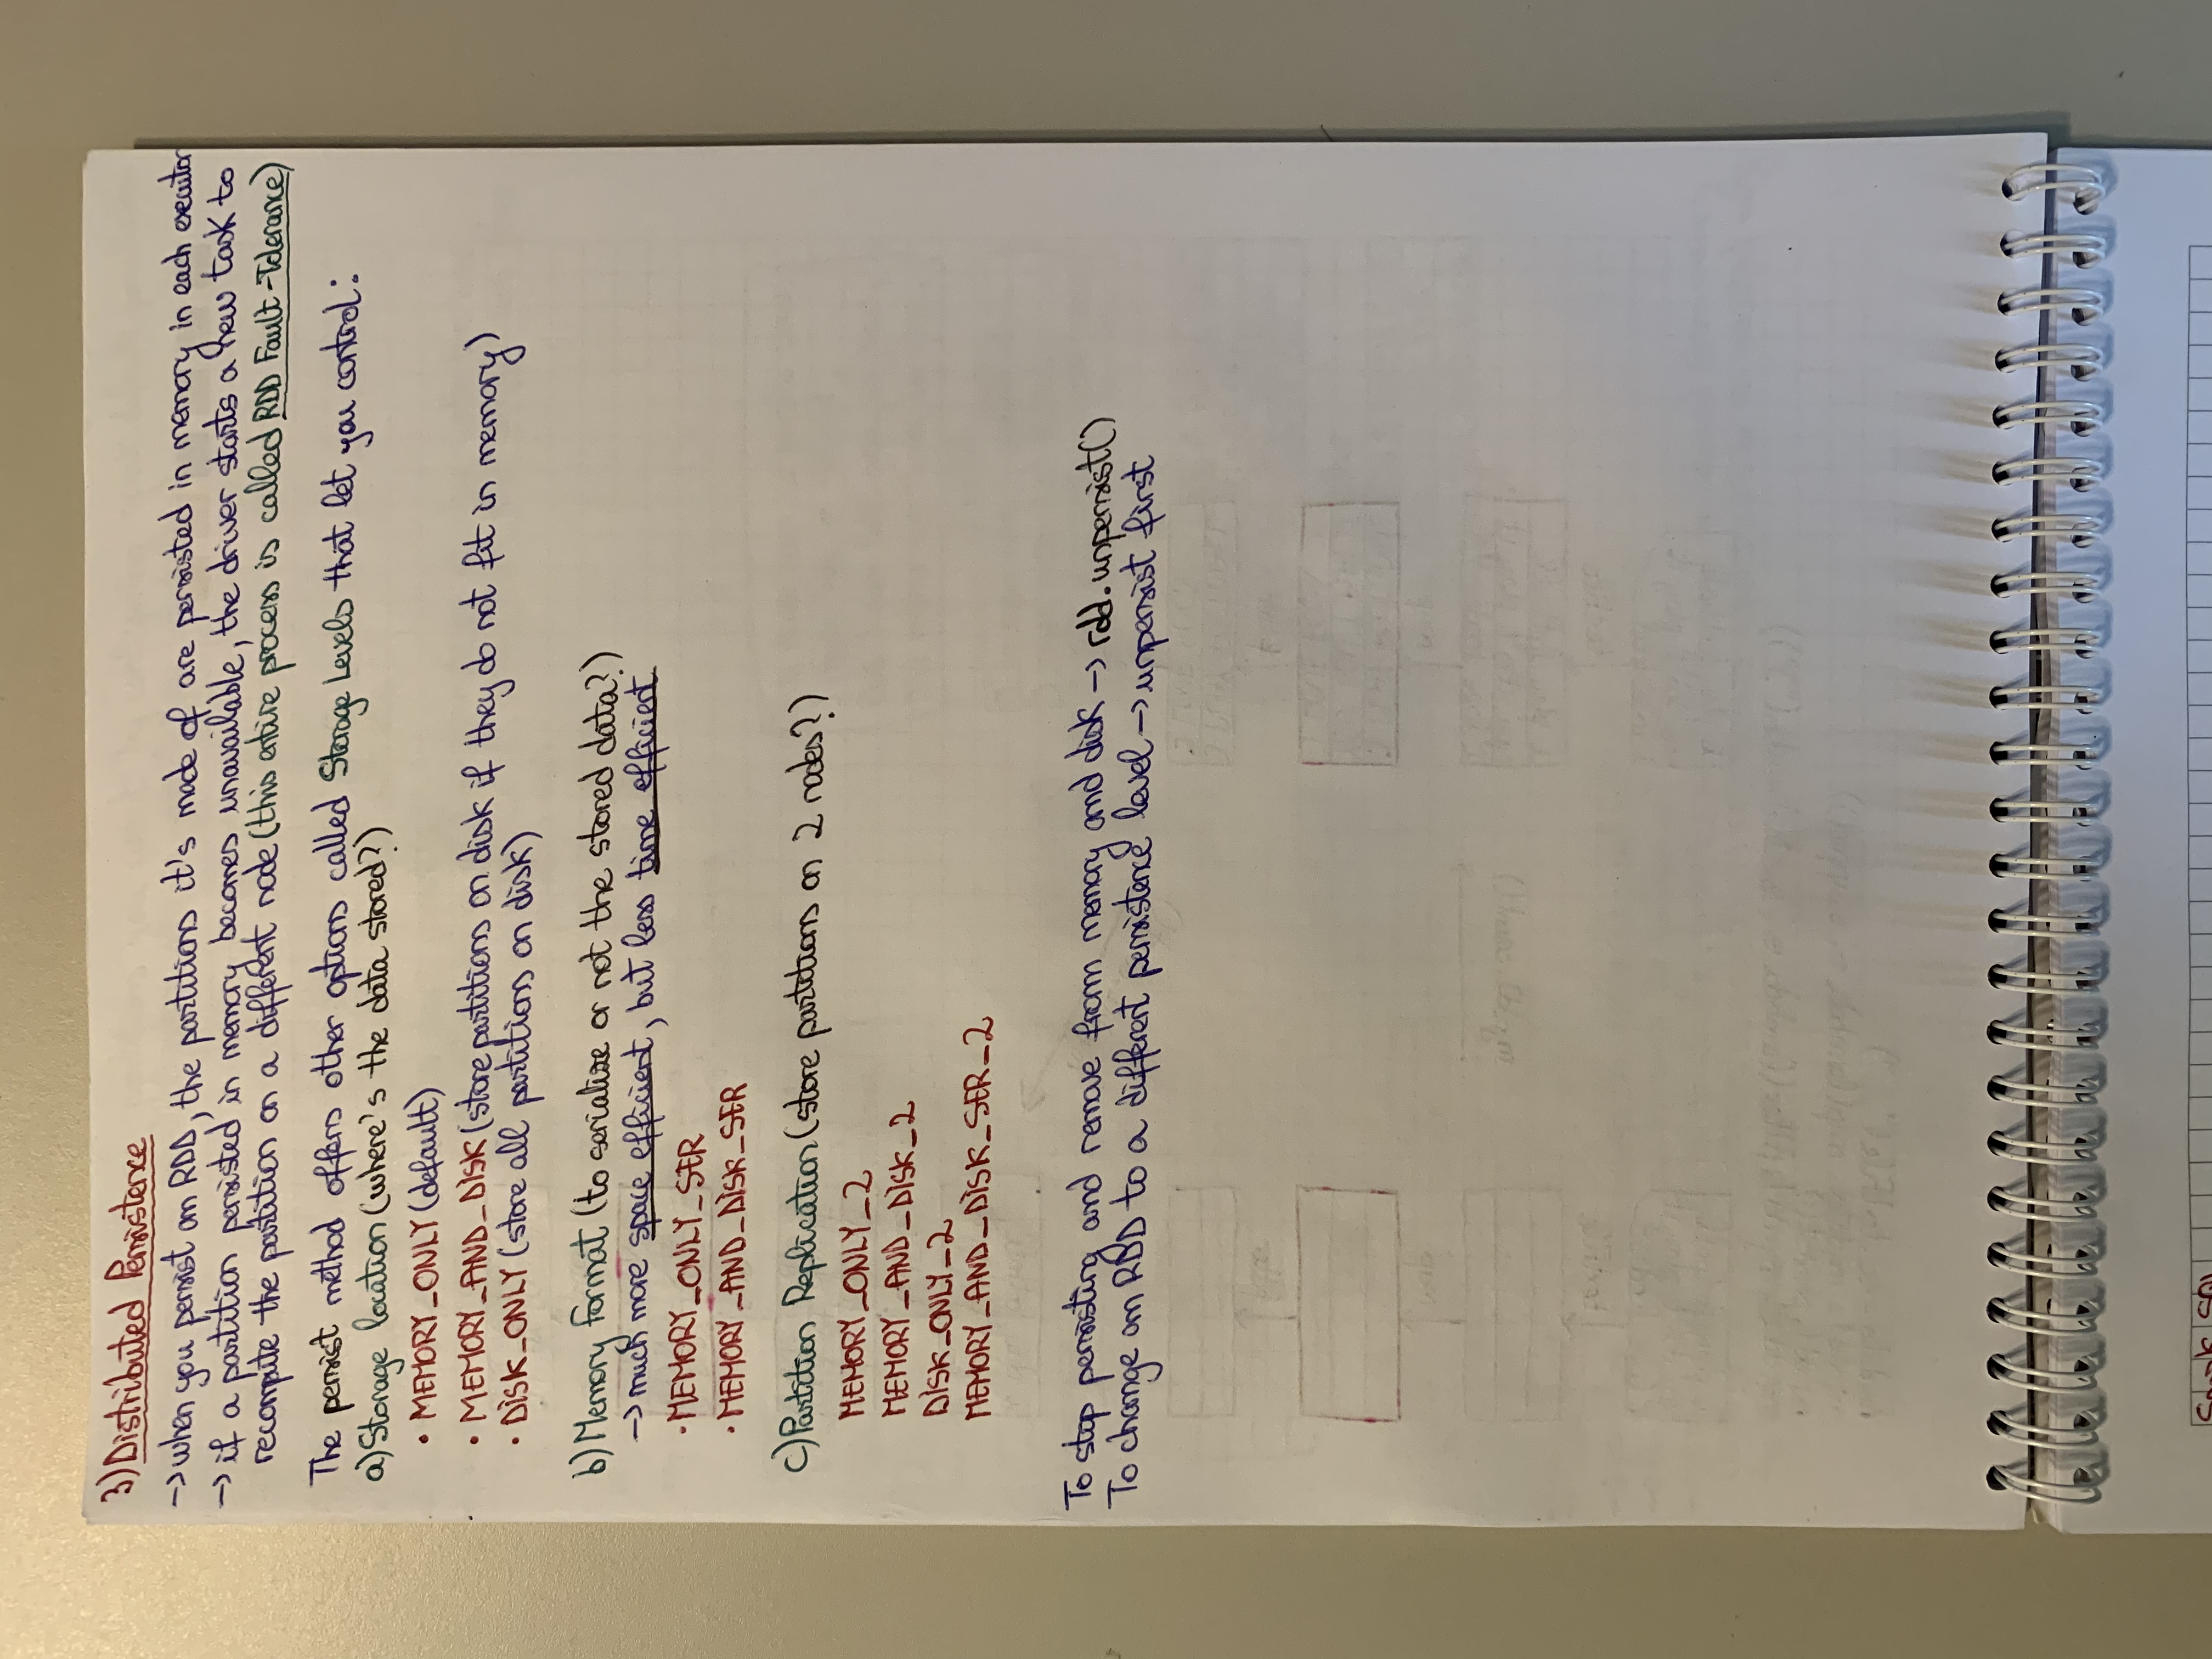 3) Distributed Persistence
-> when you persist an RDD, the partitions it's made of are persisted in memory in each executor
-> if a partition persisted in memory becomes unavailable, the driver starts a new task to
recompute the partition on a different node (this entire process is called RDD Fault-Tolerance)
The persist method offers other options called Storage Levels that let you control:
a) Storage location (where's the data stored?)
• MEMORY_ONLY (default)
• MEMORY_AND_DISK (store partitions on disk if they do not fit in memory)
• DISK_ONLY (store all partitions on disk)
b) Memory Format (to serialize or not the stored data?)
-> much more space efficient, but less time efficient
• MEMORY_ONLY_SER
• MEMORY_AND_DISK_SER
c) Partition Replication (store partitions on 2 nodes?)
MEMORY_ONLY_2
MEMORY_AND_DISK_2
DISK_ONLY_2
MEMORY_AND_DISK_SER_2
To stop persisting and remove from memory and disk -> rdd.unpersist()
To change an RDD to a different persistence level -> unpersist first
Spark SQL